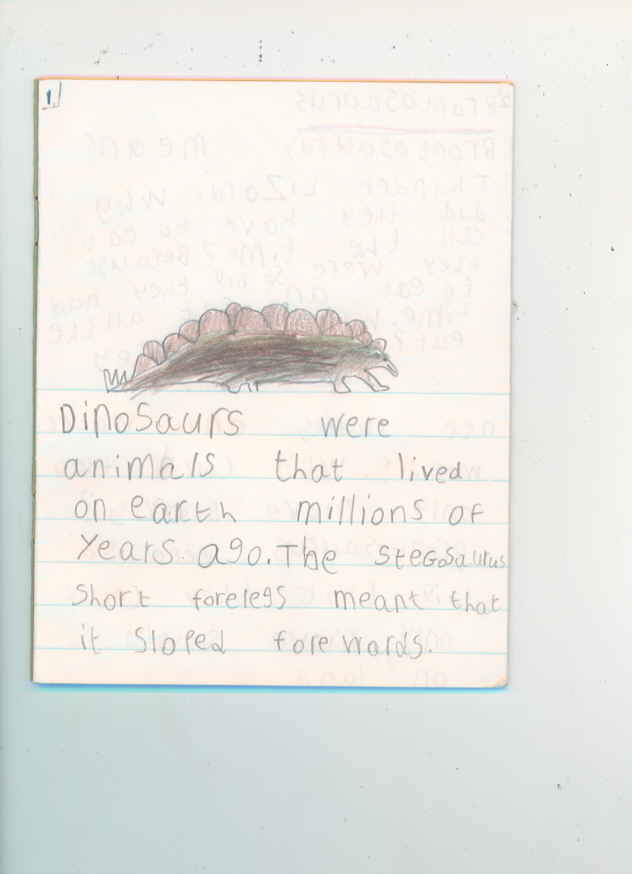 1
Dinosaurs were
animals that lived
on earth millions of
years ago. The stegosaurus
short forelegs meant that
it sloped forewords.